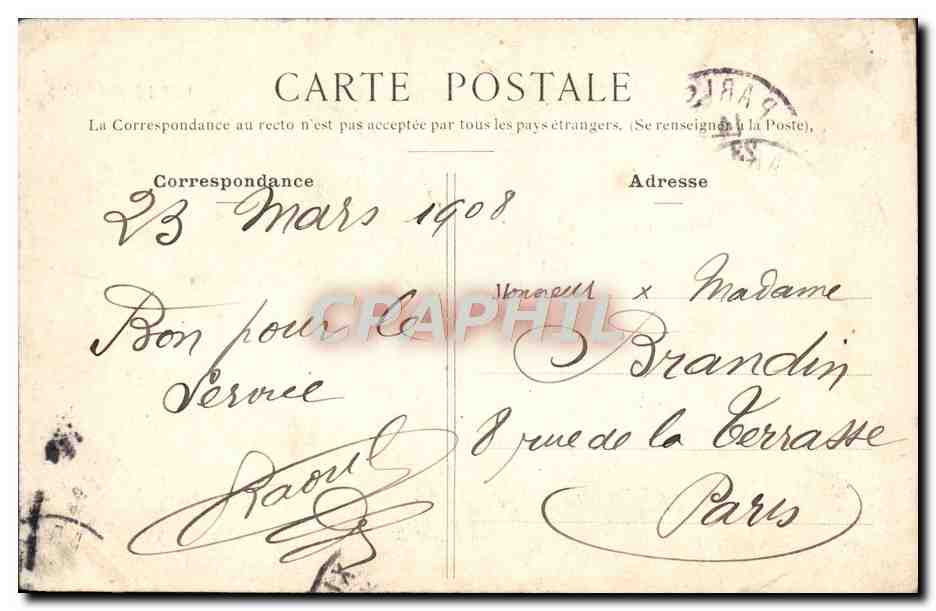 CARTE POSTALE
La Correspondance au recto n'est pas acceptée par tous les pays étrangers. (Se renseigner à la Poste).
Correspondance
23 Mars 1908
Bon pour le
Service
Raoul
Adresse
Monsieur x Madame
Brandin
8 rue de la Terrasse
Paris
PARIS
CPRAPHIL